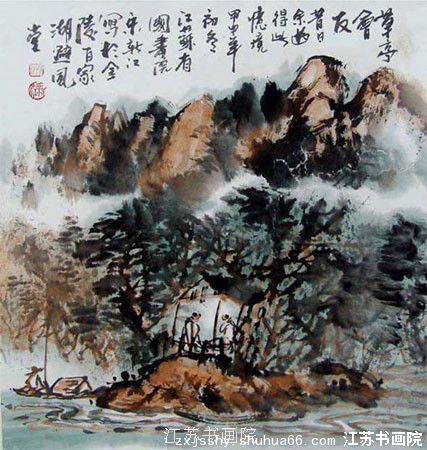 草亭
會
友
昔日
得此
憶境
甲申年
初冬
江蘇省
國畫院
寫於金
陵百家
湖
風
堂
江苏书画院
zxjsshy.shuhua66.com 江苏书画院